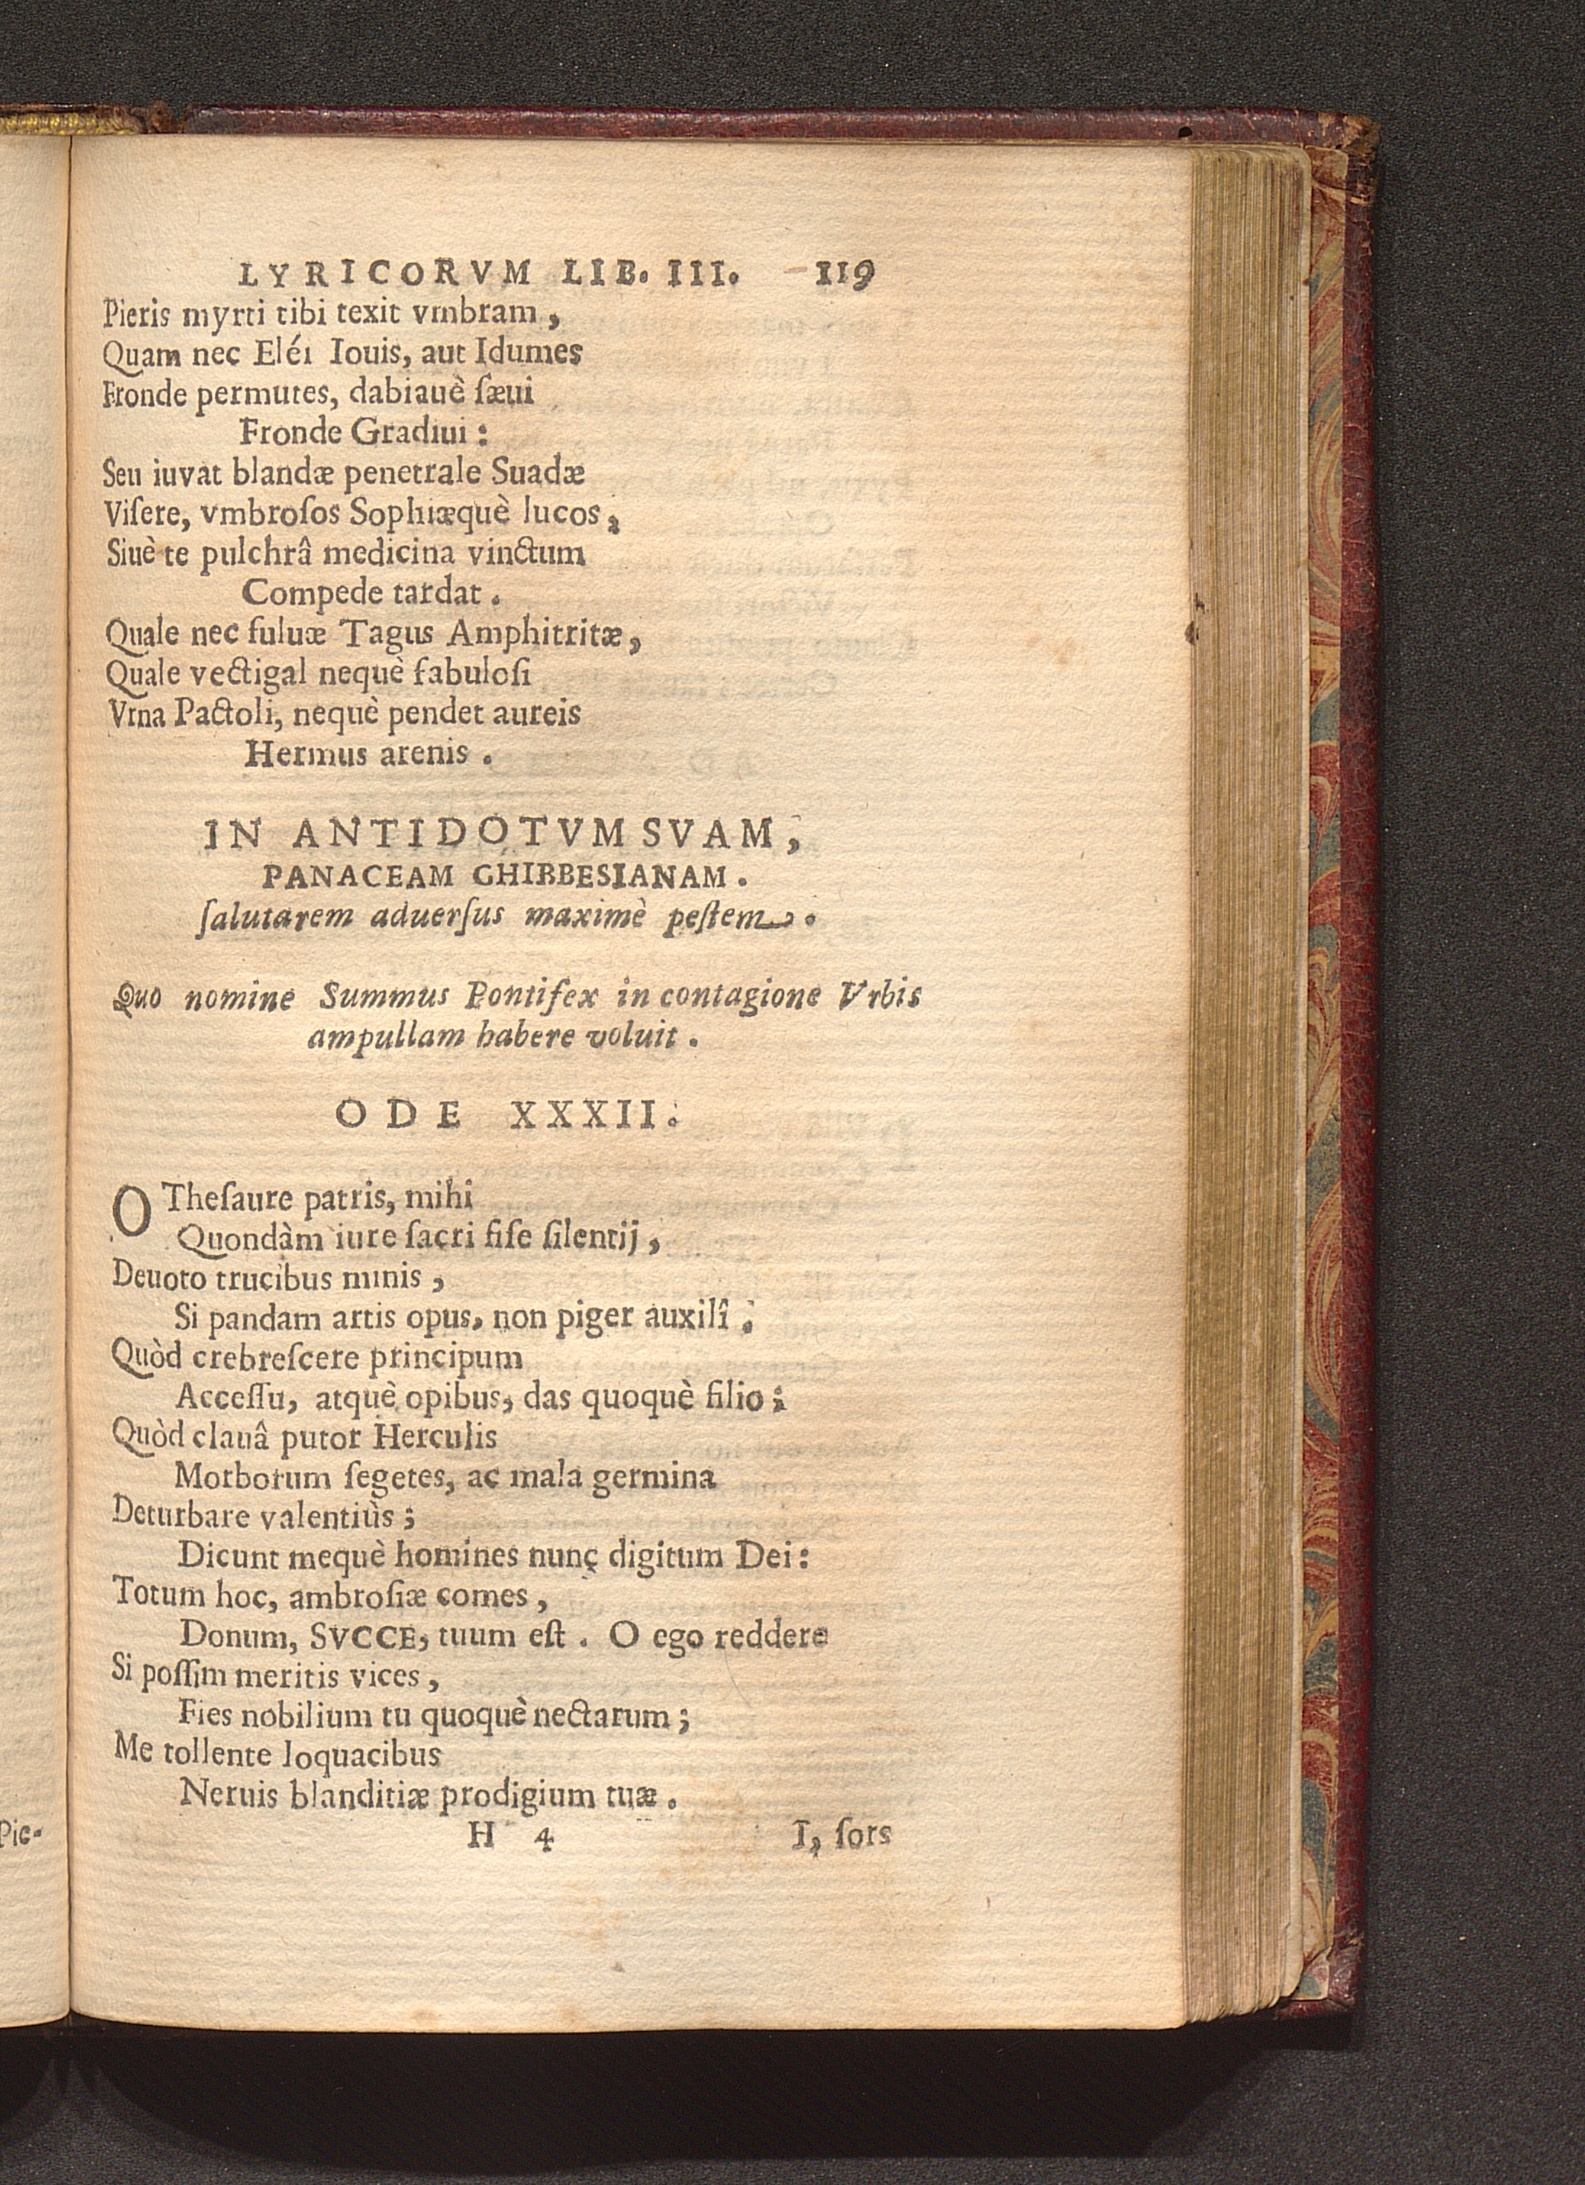 LYRICORVM LIB. III. 119
Pieris myrti tibi texit vmbram,
Quam nec Eléi Iouis, aut Idumes
Fronde permutes, dabiauè ſæui
Fronde Gradiui:
Seu iuvat blandæ penetrale Suadæ
Viſere, vmbroſos Sophiæquè lucos,
Siuè te pulchrâ medicina vinctum
Compede tardat.
Quale nec fuluæ Tagus Amphitritæ,
Quale vectigal nequè fabuloſi
Vrna Pactoli, nequè pendet aureis
Hermus arenis.
IN ANTIDOTVM SVAM,
PANACEAM GHIBBESIANAM.
ſalutarem aduerſus maximè peſtem.
Quo nomine Summus Pontifex in contagione Vrbis
ampullam habere voluit.
ODE XXXII.
O Theſaure patris, mihi
Quondàm iure ſacri fiſe ſilentij,
Deuoto trucibus minis,
Si pandam artis opus, non piger auxilî.
Quòd crebreſcere principum
Acceſſu, atquè opibus, das quoquè filio;
Quòd clauâ putor Herculis
Morborum ſegetes, ac mala germina
Deturbare valentiùs;
Dicunt mequè homines nunc digitum Dei:
Totum hoc, ambroſiæ comes,
Donum, SVCCE, tuum eſt. O ego reddere
Si poſſim meritis vices,
Fies nobilium tu quoquè nectarum;
Me tollente loquacibus
Neruis blanditiæ prodigium tuæ.
H 4 I, ſors
Pie-